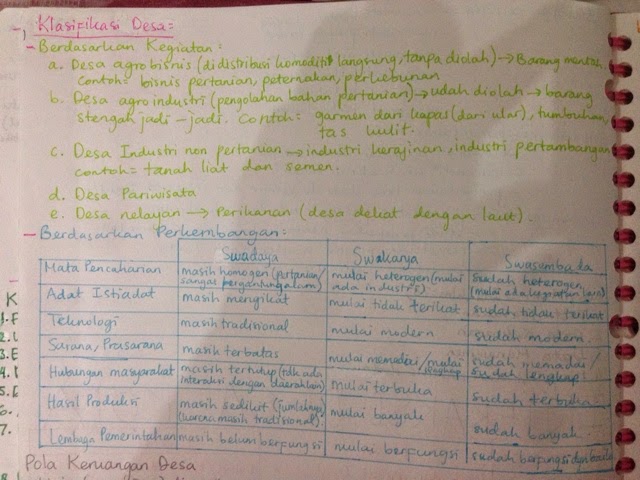 - Klasifikasi Desa:
- Berdasarkan Kegiatan:
a. Desa agrobisnis (didistribusi komoditi langsung, tanpa diolah) → Barang mentah
Contoh: bisnis pertanian, peternakan, perkebunan
b. Desa agroindustri (pengolahan bahan pertanian) → udah diolah → barang
stengah jadi - jadi. Contoh: garmen dari kapas (dari ular), tumbuhan,
tas kulit.
c. Desa Industri non pertanian → industri kerajinan, industri pertambangan
contoh = tanah liat dan semen.
d. Desa Pariwisata
e. Desa nelayan → Perikanan (desa dekat dengan laut).
- Berdasarkan Perkembangan:
Swadaya Swakarya Swasembada
Mata Pencaharian masih homogen (pertanian/ sangat bergantung alam) mulai heterogen (mulai ada industri) sudah heterogen (mulai ada kegiatan lain)
Adat Istiadat masih mengikat mulai tidak terikat sudah tidak terikat
Teknologi masih tradisional mulai modern sudah modern
Sarana/Prasarana masih terbatas mulai memadai/mulai lengkap sudah memadai/ sudah lengkap
Hubungan masyarakat masih tertutup (tdk ada interaksi dengan daerah lain) mulai terbuka sudah terbuka
Hasil Produksi masih sedikit (jumlahnya) (karena masih tradisional) mulai banyak sudah banyak
Lembaga Pemerintahan masih belum berfungsi mulai berfungsi sudah berfungsi dgn baik
Pola Keruangan Desa